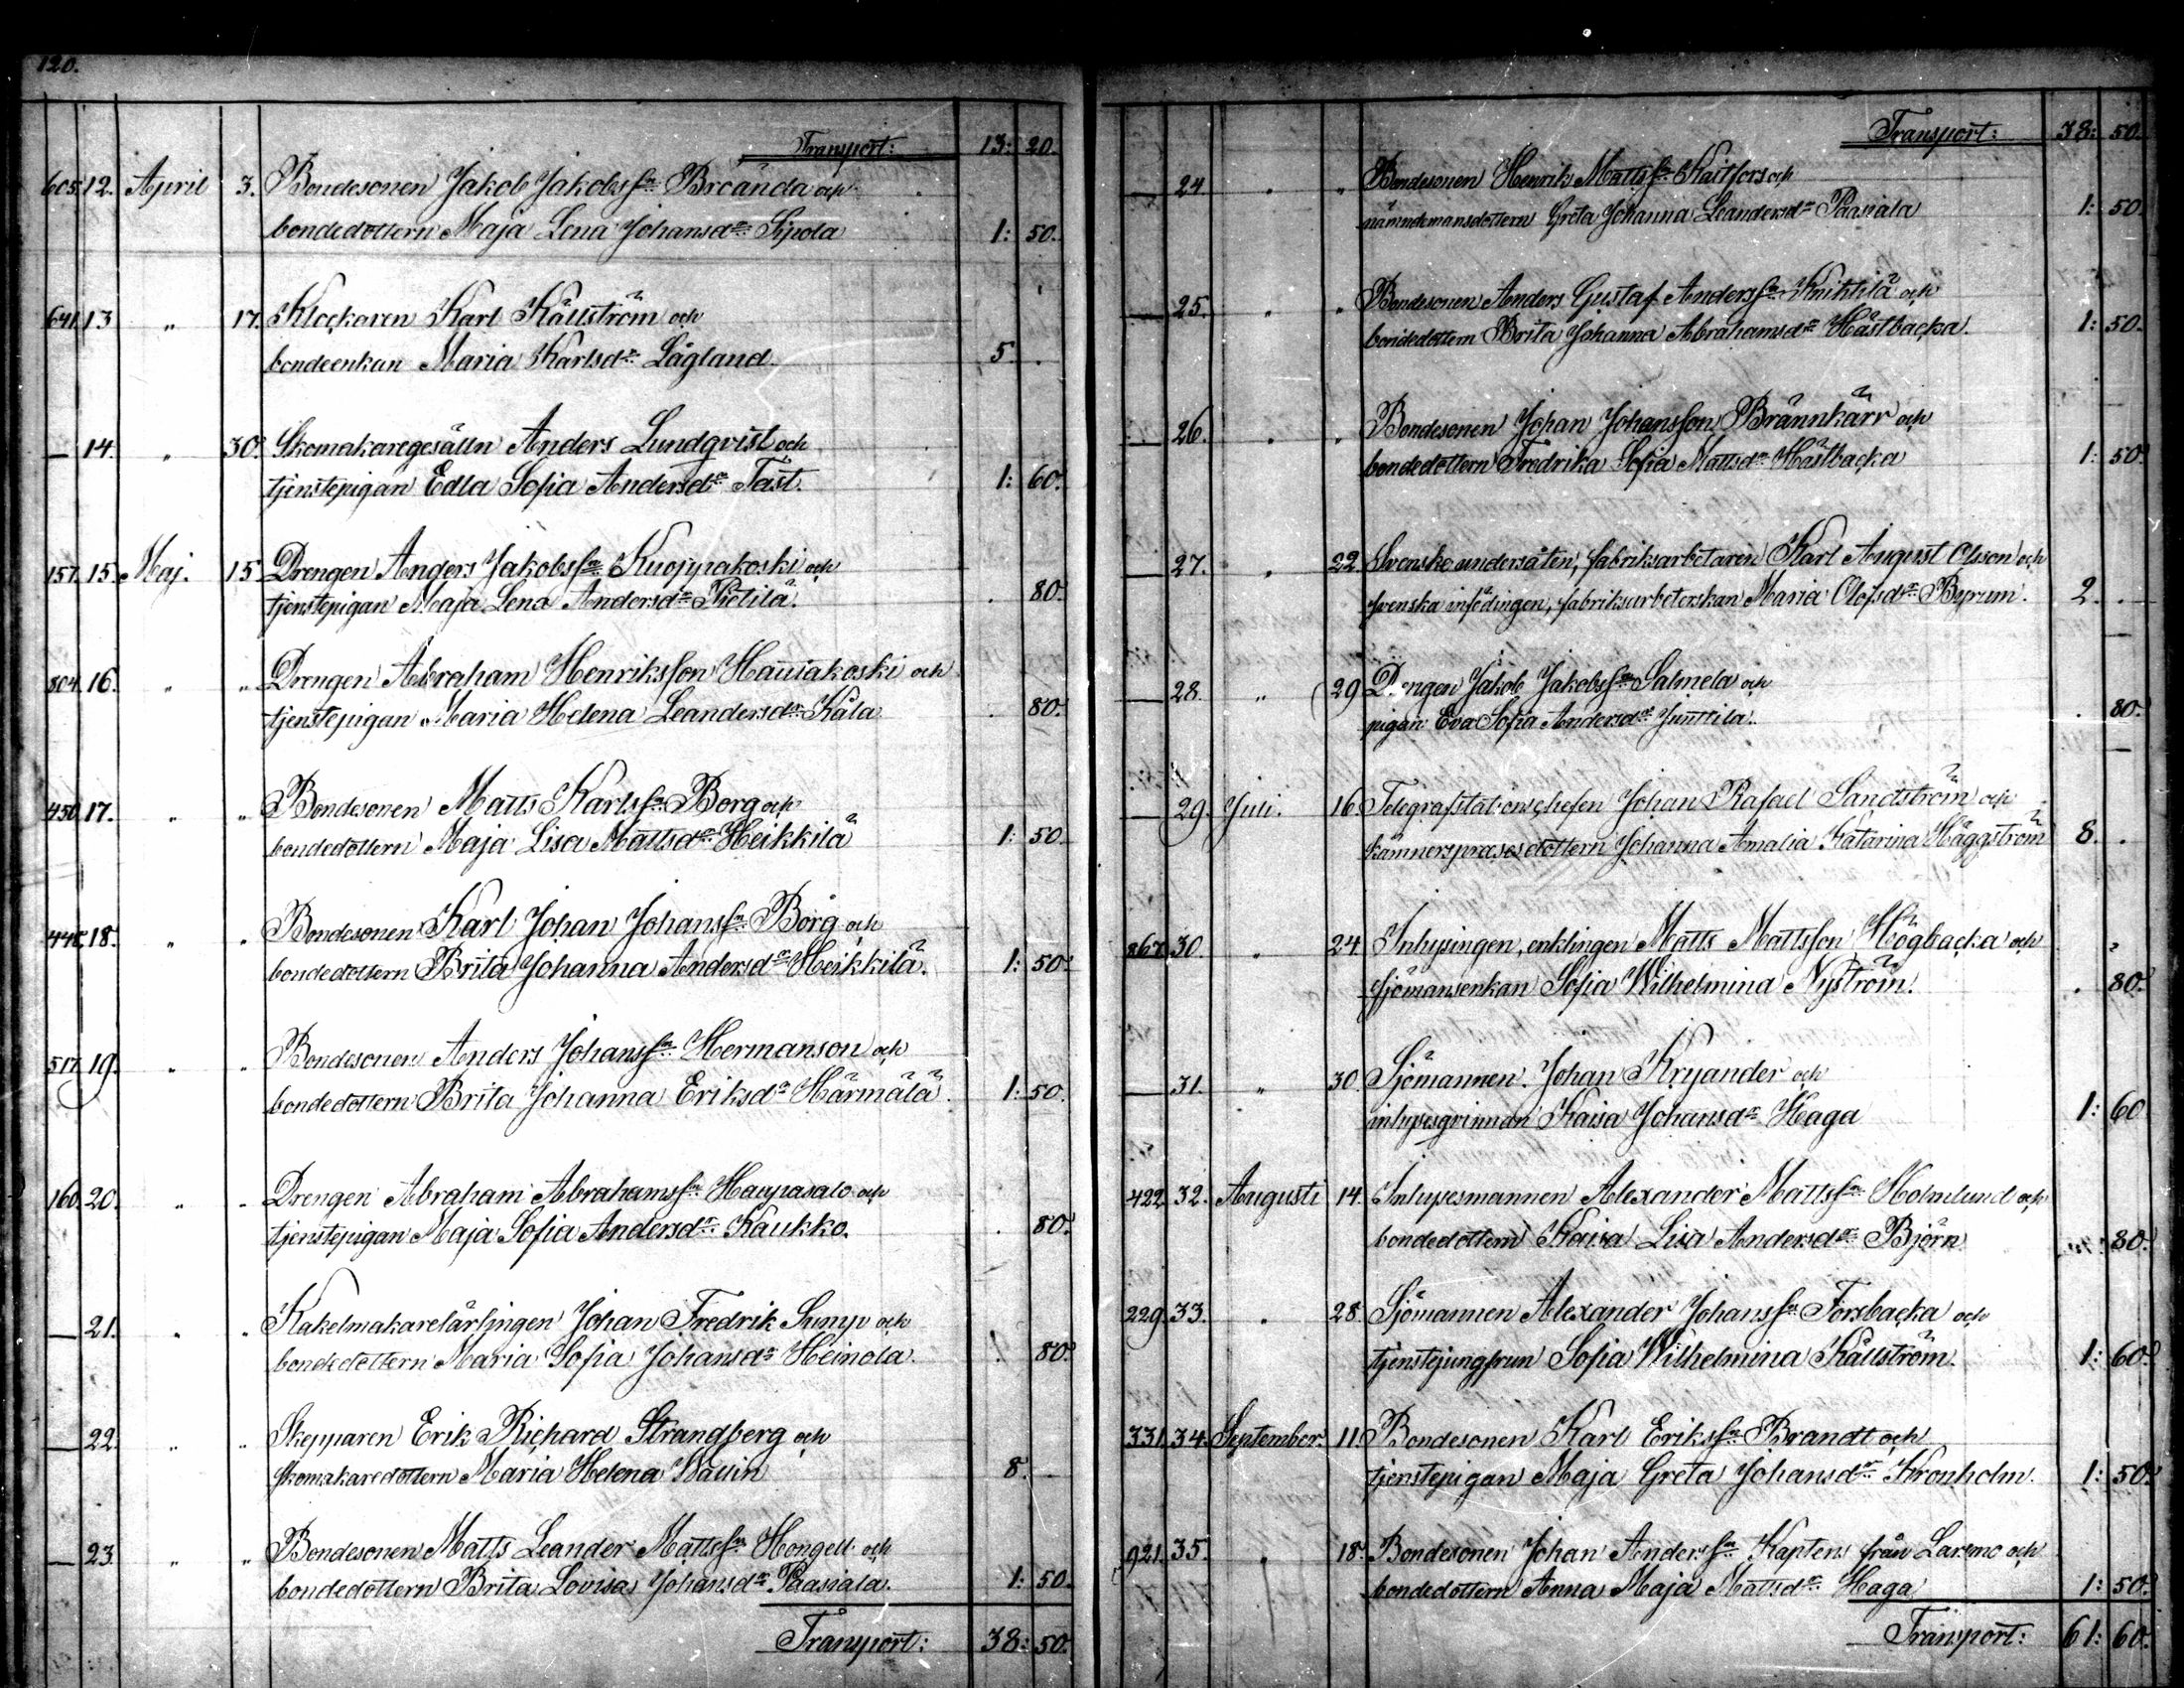 120.
Transport: 13: 20.
605. 12. April 3. Bondesonen Jakob Jakobsſn Broända och
bondedottern Maja Lena Johansdr Sipola 1: 50.
641. 13 " 17. Klockaren Karl Källström och
bondeenkan Maria Karlsdr Lågland. 5. .
— 14. " 30. Skomakaregesälln Anders Lundqvist och
tjenstepigan Edla Sofia Andersdr Täst. 1: 60.
157. 15. Maj. 15 Drengen Anders Jakobsſn Kuojpakoski och
tjenstepigan Maja Lena Andersdr Pietilä. . 80.
804. 16. " " Drengen Abraham Henriksſon Hautakoski och
tjenstepigan Maria Helena Leandersdr Kåla . 80.
450. 17. " " Bondesonen Matts Karlsſn Borg och
bondedottern Maja Lisa Mattsdr Heikkilä 1: 50.
448. 18. " " Bondesonen Karl Johan Johansſn Borg och
bondedottern Brita Johanna Andersdr Heikkilä. 1: 50.
517. 19. " " Bondesonen Anders Johansſn Hermanson och
bondedottern Brita Johanna Eriksdr Härmälä. 1: 50.
160. 20. " " Drengen Abraham Abrahamsſn Haapasalo och
tjenstepigan Maja Sofia Andersdr Kaukko. . 80.
— 21. " " Kakelmakarelärlingen Johan Fredrik Sump och
bondedottern Maria Sofia Johansdr Heinola. . 80.
— 22. " " Skepparen Erik Richard Strandberg och
skomakaredottern Maria Helena Wallin 8. —
— 23 " " Bondesonen Matts Leander Mattsſn Hongell och
bondedottern Brita Lovisa Johansdr Paasiala. 1: 50.
Transport: 38: 50.
Transport: 38: 50.
— 24 " " Bondesonen Henrik Mattsſn Kaitfors och
nämndemansdottern Greta Johanna Leandersdr Paasiala 1: 50.
— 25. " " Bondesonen Anders Gustaf Andersſn Knihtilä och
bondedottern Brita Johanna Abrahamsdr Hästbacka. 1: 50.
— 26. " " Bondesonen Johan Johansſon Brännkärr och
bondedottern Fredrika Sofia Mattsdr Hästbacka 1: 50.
— 27. " 22. Svenske undersåten, fabriksarbetaren Karl August Olsson och
svenska infödingen, fabriksarbeterskan Maria Olofsdr Byrum. 2. .
— 28. " 29 Drengen Jakob Jakobsſn Salmela och
pigan Eva Sofia Andersdr Junttila. . 80.
— 29. Juli. 16. Telegrafstationschefen Johan Rafael Sandström och
kämnerspræsesdottern Johanna Amalia Katarina Häggström 8. .
867. 30. " 24 Inhysingen, enklingen Matts Mattsſon Högbacka och
sjömansenkan Sofia Wilhelmina Nyström. . 80.
— 31. " 30. Sjömannen Johan Kryander och
inhysesqvinnan Kaisa Johansdr Haga 1: 60.
422. 32. Augusti 14. Inhysesmannen Alexander Mattsſn Holmlund och
bondedottern Kaisa Lisa Andersdr Björn 80.
229. 33. " 28. Sjömannen Alexander Johansſn Forsbacka och
tjenstejungfrun Sofia Wilhelmina Källström. 1: 60.
331. 34. September. 11. Bondesonen Karl Eriksſn Brandt och
tjenstepigan Maja Greta Johansdr Kronholm. 1: 50.
921. 35. " 18. Bondesonen Johan Andersſn Kaptens från Larsmo och
bondedottern Anna Maja Mattsdr Haga 1: 50.
Transport: 61: 60.